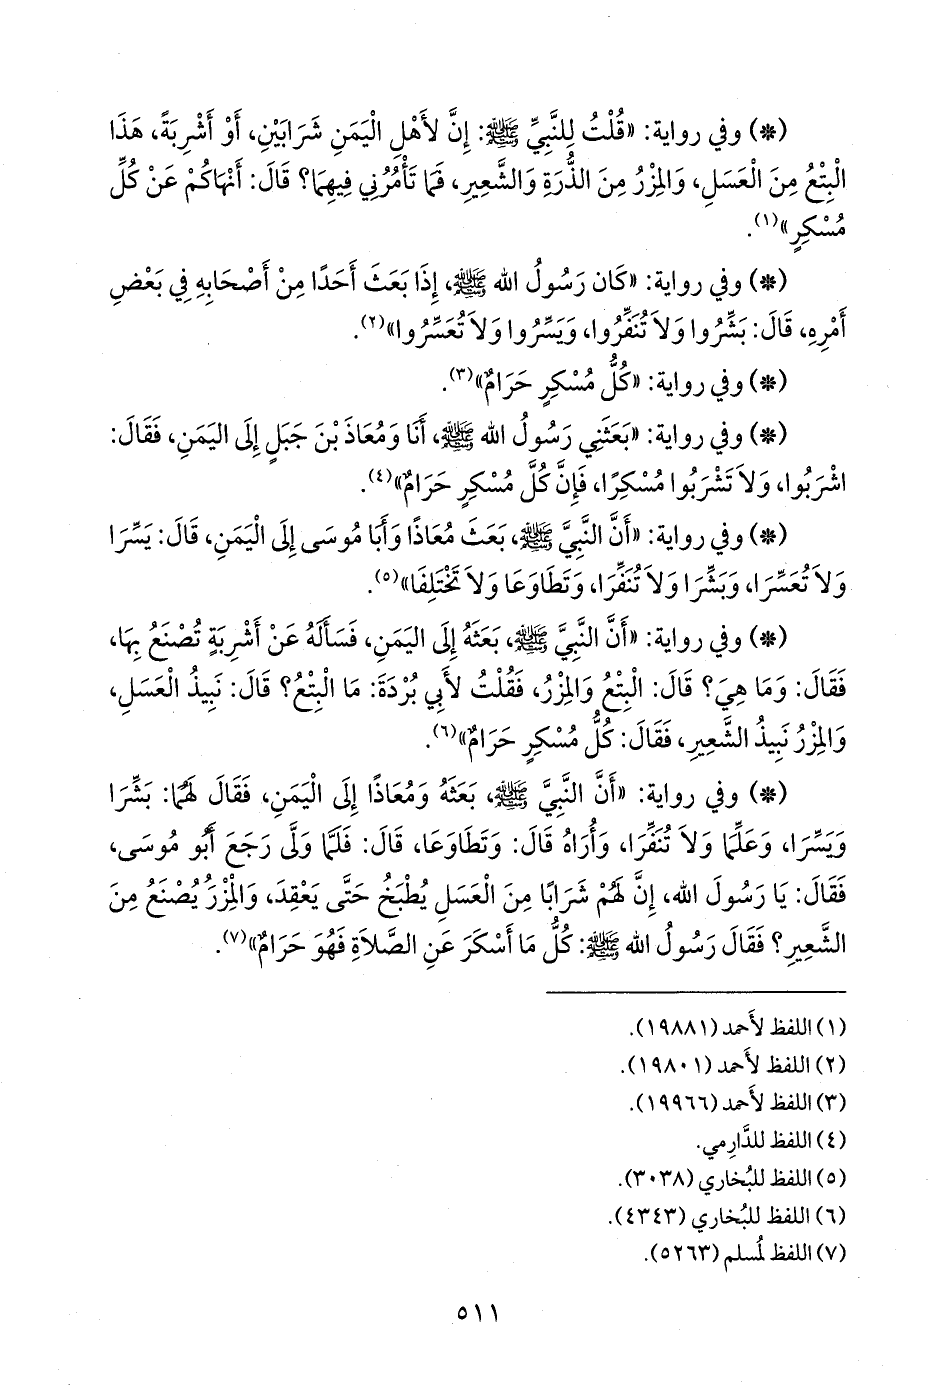 (*) وفي رواية: «قُلْتُ لِلنَّبِيِّ ﷺ: إِنَّ لأَهْلِ الْيَمَنِ شَرَابَيْنِ، أَوْ أَشْرِبَةً، هَذَا
الْبِتْعُ مِنَ الْعَسَلِ، وَالمِزْرُ مِنَ الذُّرَةِ وَالشَّعِيرِ، فَمَا تَأْمُرُنِي فِيهِمَا؟ قَالَ: أَنْهَاكُمْ عَنْ كُلِّ
مُسْكِرٍ»(١).
(*) وفي رواية: «كَان رَسُولُ الله ﷺ، إِذَا بَعَثَ أَحَدًا مِنْ أَصْحَابِهِ فِي بَعْضِ
أَمْرِهِ، قَالَ: بَشِّرُوا وَلاَ تُنَفِّرُوا، وَيَسِّرُوا وَلاَ تُعَسِّرُوا»(٢).
(*) وفي رواية: «كُلُّ مُسْكِرٍ حَرَامٌ»(٣).
(*) وفي رواية: «بَعَثَنِي رَسُولُ الله ﷺ، أَنَا وَمُعَاذَ بْنَ جَبَلٍ إِلَى اليَمَنِ، فَقَالَ:
اشْرَبُوا، وَلاَ تَشْرَبُوا مُسْكِرًا، فَإِنَّ كُلَّ مُسْكِرٍ حَرَامٌ»(٤).
(*) وفي رواية: «أَنَّ النَّبِيَّ ﷺ، بَعَثَ مُعَاذًا وَأَبَا مُوسَى إِلَى الْيَمَنِ، قَالَ: يَسِّرَا
وَلاَ تُعَسِّرَا، وَبَشِّرَا وَلاَ تُنَفِّرَا، وَتَطَاوَعَا وَلاَ تَخْتَلِفَا»(٥).
(*) وفي رواية: «أَنَّ النَّبِيَّ ﷺ، بَعَثَهُ إِلَى اليَمَنِ، فَسَأَلَهُ عَنْ أَشْرِبَةٍ تُصْنَعُ بِهَا،
فَقَالَ: وَمَا هِيَ؟ قَالَ: الْبِتْعُ وَالمِزْرُ، فَقُلْتُ لأَبِي بُرْدَةَ: مَا الْبِتْعُ؟ قَالَ: نَبِيذُ الْعَسَلِ،
وَالمِزْرُ نَبِيذُ الشَّعِيرِ، فَقَالَ: كُلُّ مُسْكِرٍ حَرَامٌ»(٦).
(*) وفي رواية: «أَنَّ النَّبِيَّ ﷺ، بَعَثَهُ وَمُعَاذًا إِلَى الْيَمَنِ، فَقَالَ لَهُمَا: بَشِّرَا
وَيَسِّرَا، وَعَلِّمَا وَلاَ تُنَفِّرَا، وَأُرَاهُ قَالَ: وَتَطَاوَعَا، قَالَ: فَلَمَّا وَلَّى رَجَعَ أَبُو مُوسَى،
فَقَالَ: يَا رَسُولَ الله، إِنَّ لَهُمْ شَرَابًا مِنَ الْعَسَلِ يُطْبَخُ حَتَّى يَعْقِدَ، وَالْمِزْرُ يُصْنَعُ مِنَ
الشَّعِيرِ؟ فَقَالَ رَسُولُ الله ﷺ: كُلُّ مَا أَسْكَرَ عَنِ الصَّلاَةِ فَهُوَ حَرَامٌ»(٧).
(١) اللفظ لأَحمد (١٩٨٨١).
(٢) اللفظ لأَحمد (١٩٨٠١).
(٣) اللفظ لأَحمد (١٩٩٦٦).
(٤) اللفظ للدَّارِمي.
(٥) اللفظ للبُخاري (٣٠٣٨).
(٦) اللفظ للبُخاري (٤٣٤٣).
(٧) اللفظ لمُسلم (٥٢٦٣).
٥١١